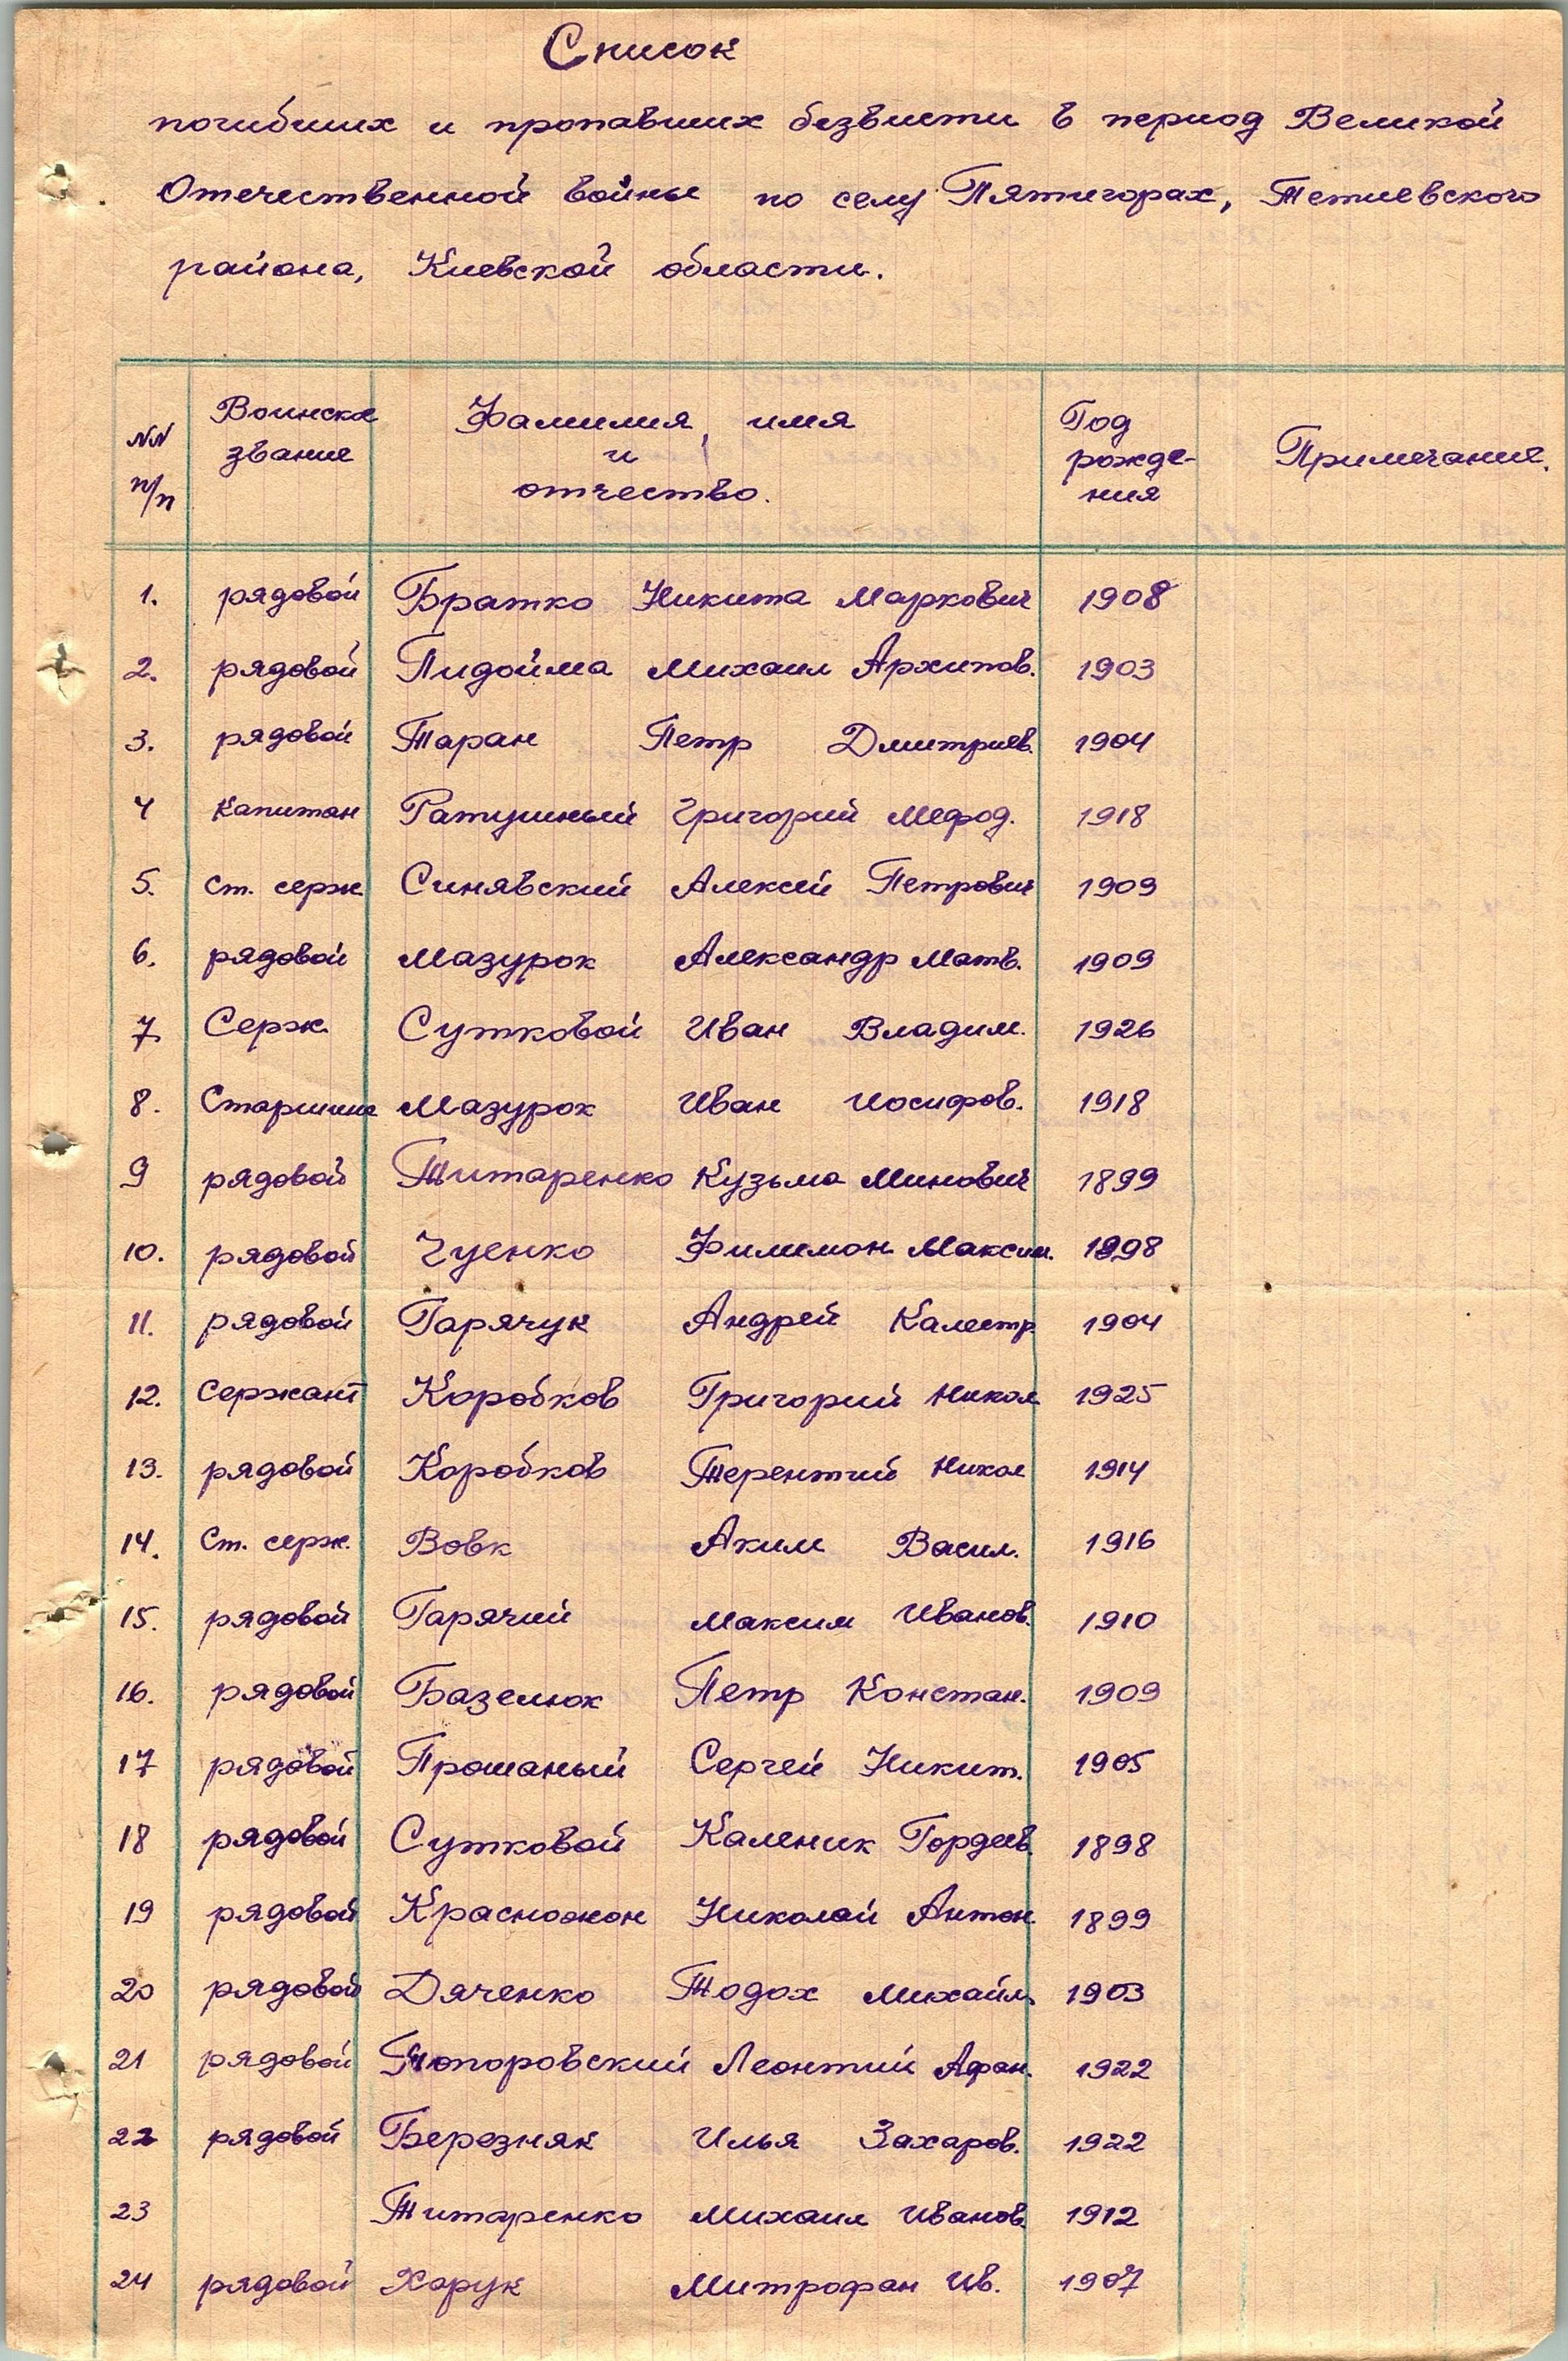 Список
погибших и пропавших безвисти в период Великой
Отечественной войны по селу Пятигорах, Тетиевского
района, Киевской области.
NN п/п Воинское звание Фамилия, имя и отчество. Год рожде-ния Примечание.
1. рядовой Братко Никита Маркович 1908
2. рядовой Пидойма Михаил Архипов. 1903
3. рядовой Таран Петр Дмитриев. 1904
4 Капитан Ратушный Григорий Мефод. 1918
5. Ст. серж Синявский Алексей Петрович 1909
6. рядовой Мазурок Александр Матв. 1909
7. Серж. Сутковой Иван Владим. 1926
8. Старшина Мазурок Иван Иосифов. 1918
9 рядовой Титаренко Кузьма Минович 1899
10. рядовой Чуенко Филимон Максим. 1898
11. рядовой Гарячук Андрей Калестр. 1904
12. Сержант Коробков Григорий Никол 1925
13. рядовой Коробков Терентий Никол 1914
14. Ст. серж. Вовк Аким Васил. 1916
15. рядовой Гарячий Максим Иванов. 1910
16. рядовой Базелюк Петр Констан. 1909
17 рядовой Прошаный Сергей Никит. 1905
18 рядовой Сутковой Каленик Гордеев. 1898
19 рядовой Красножон Николай Антон. 1899
20 рядовой Дяченко Тодох Михайл. 1903
21 рядовой Топоровский Леонтий Афан. 1922
22 рядовой Березняк Илья Захаров. 1922
23 Титаренко Михаил Иванов. 1912
24 рядовой Харук Митрофан Ив. 1907